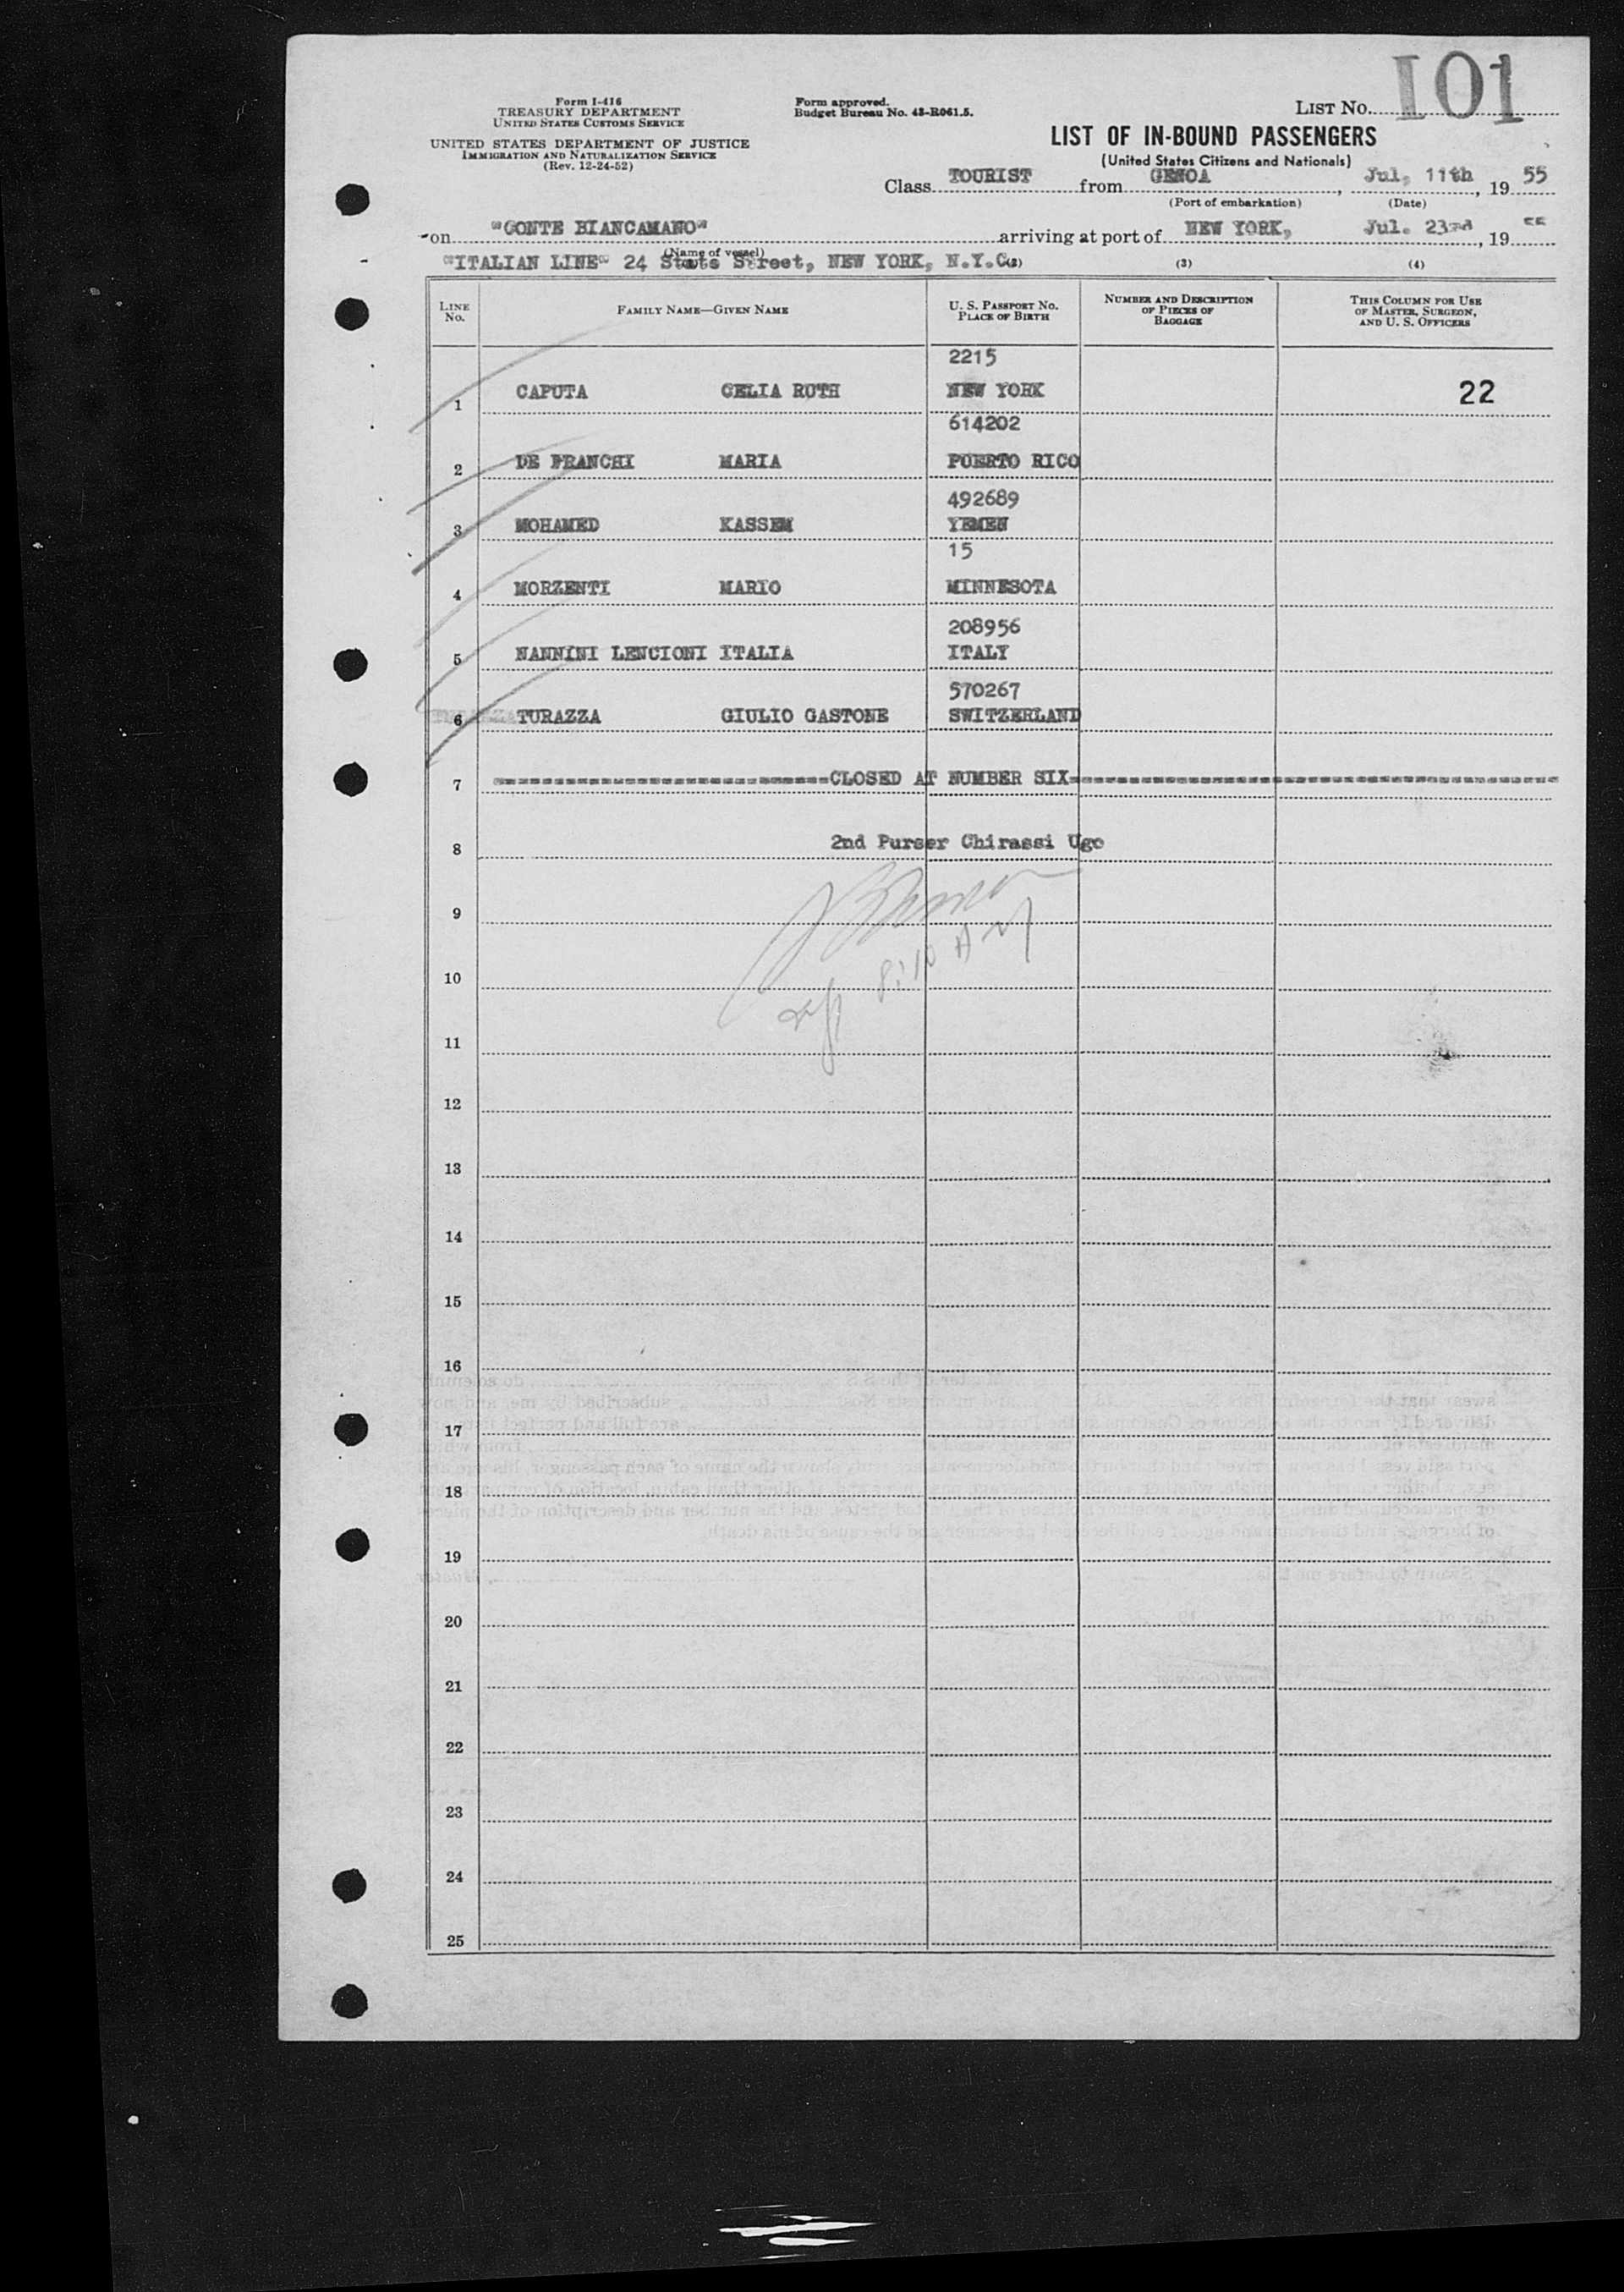 101
Form I-416
TREASURY DEPARTMENT
UNITED STATES CUSTOMS SERVICE
UNITED STATES DEPARTMENT OF JUSTICE
IMMIGRATION AND NATURALIZATION SERVICE
(Rev. 12-24-52)
Form approved.
Budget Bureau No. 43-R061.5.
LIST NO.
LIST OF IN-BOUND PASSENGERS
(United States Citizens and Nationals)
Class TOURIST from GENOA, Jul, 11th, 19 55
(Port of embarkation) (Date)
on "CONTE BIANCAMANO" arriving at port of NEW YORK, Jul. 23rd, 19 55
(Name of vessel)
"ITALIAN LINE" 24 State Street, NEW YORK, N.Y.C. (2) (3) (4)
LINE No. FAMILY NAME—GIVEN NAME U. S. PASSPORT NO. PLACE OF BIRTH NUMBER AND DESCRIPTION OF PIECES OF BAGGAGE THIS COLUMN FOR USE OF MASTER, SURGEON, AND U. S. OFFICERS
2215
1 CAPUTA CELIA RUTH NEW YORK 22
614202
2 DE FRANCHI MARIA PUERTO RICO
492689
3 MOHAMED KASSEM YEMEN
15
4 MORZENTI MARIO MINNESOTA
208956
5 NANNINI LENCIONI ITALIA ITALY
570267
6 TURAZZA GIULIO GASTONE SWITZERLAND
7 CLOSED AT NUMBER SIX
8 2nd Purser Chirassi Ugo
9
8:10 A
10
11
12
13
14
15
16
17
18
19
20
21
22
23
24
25